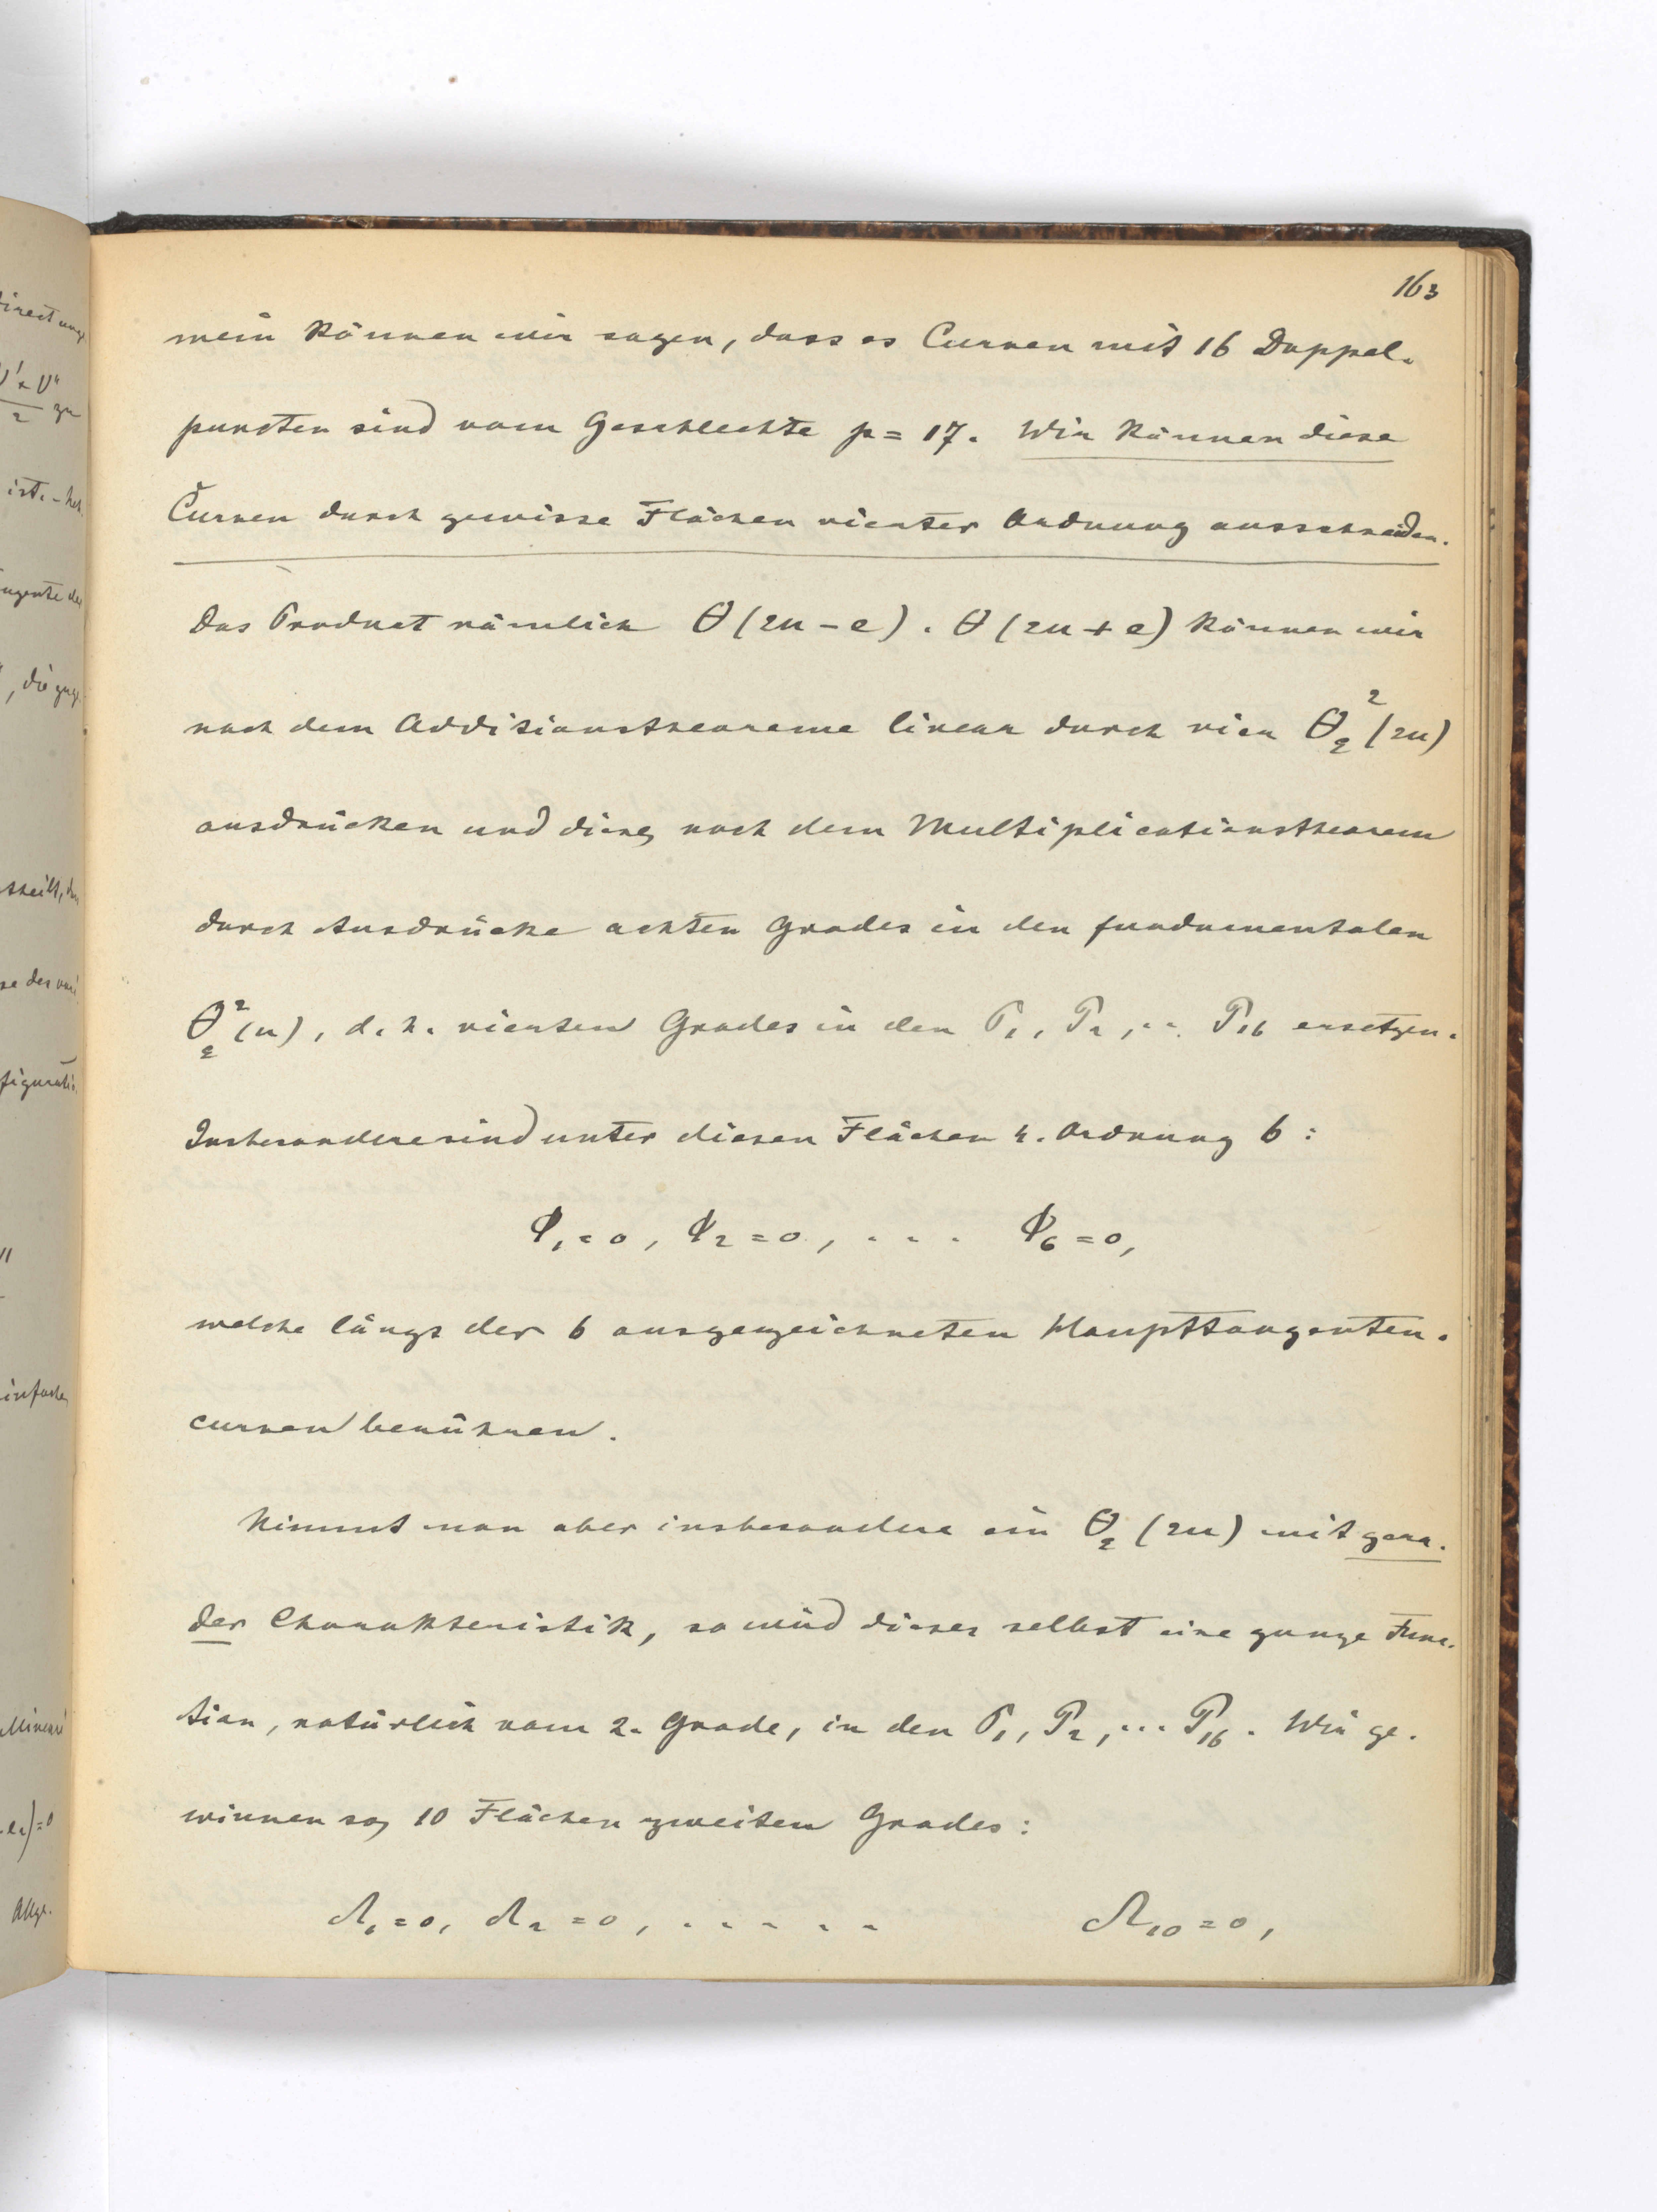 163
mein können wir sagen, dass es Curven mit 16 Doppel-
puncten sind vom Geschlechte p = 17. Wir können diese
Curven durch gewisse Flächen vierter Ordnung ausschneiden.
Das Product nämlich θ(2u-e) . θ(2u+e) können wir
nach dem Additionstheoreme linear durch vier θ₂²(2u)
ausdrücken und diese, nach dem Multiplicationstheorem
durch Ausdrücke achten Grades in den fundamentalen
θ₂²(u), d. h. vierten Grades in den P₁, P₂, .. P₁₆ ersetzen.
Insbesondere sind unter diesen Flächen 4. Ordnung 6:
Φ₁=0, Φ₂=0, . . . Φ₆=0,
welche längs der 6 ausgezeichneten Haupttangenten-
curven berühren.
Nimmt man aber insbesondere ein θ₂(2u) mit gera-
der Charakteristik, so wird dieses selbst eine ganze Func-
tion, natürlich vom 2. Grade, in den P₁, P₂, ... P₁₆. Wir ge-
winnen so, 10 Flächen zweiten Grades:
Ω₁=0, Ω₂=0, . . . . . Ω₁₀=0,
direct
V'+V"
2
zu
ist.
tangente der
se der
einfache
Allge-